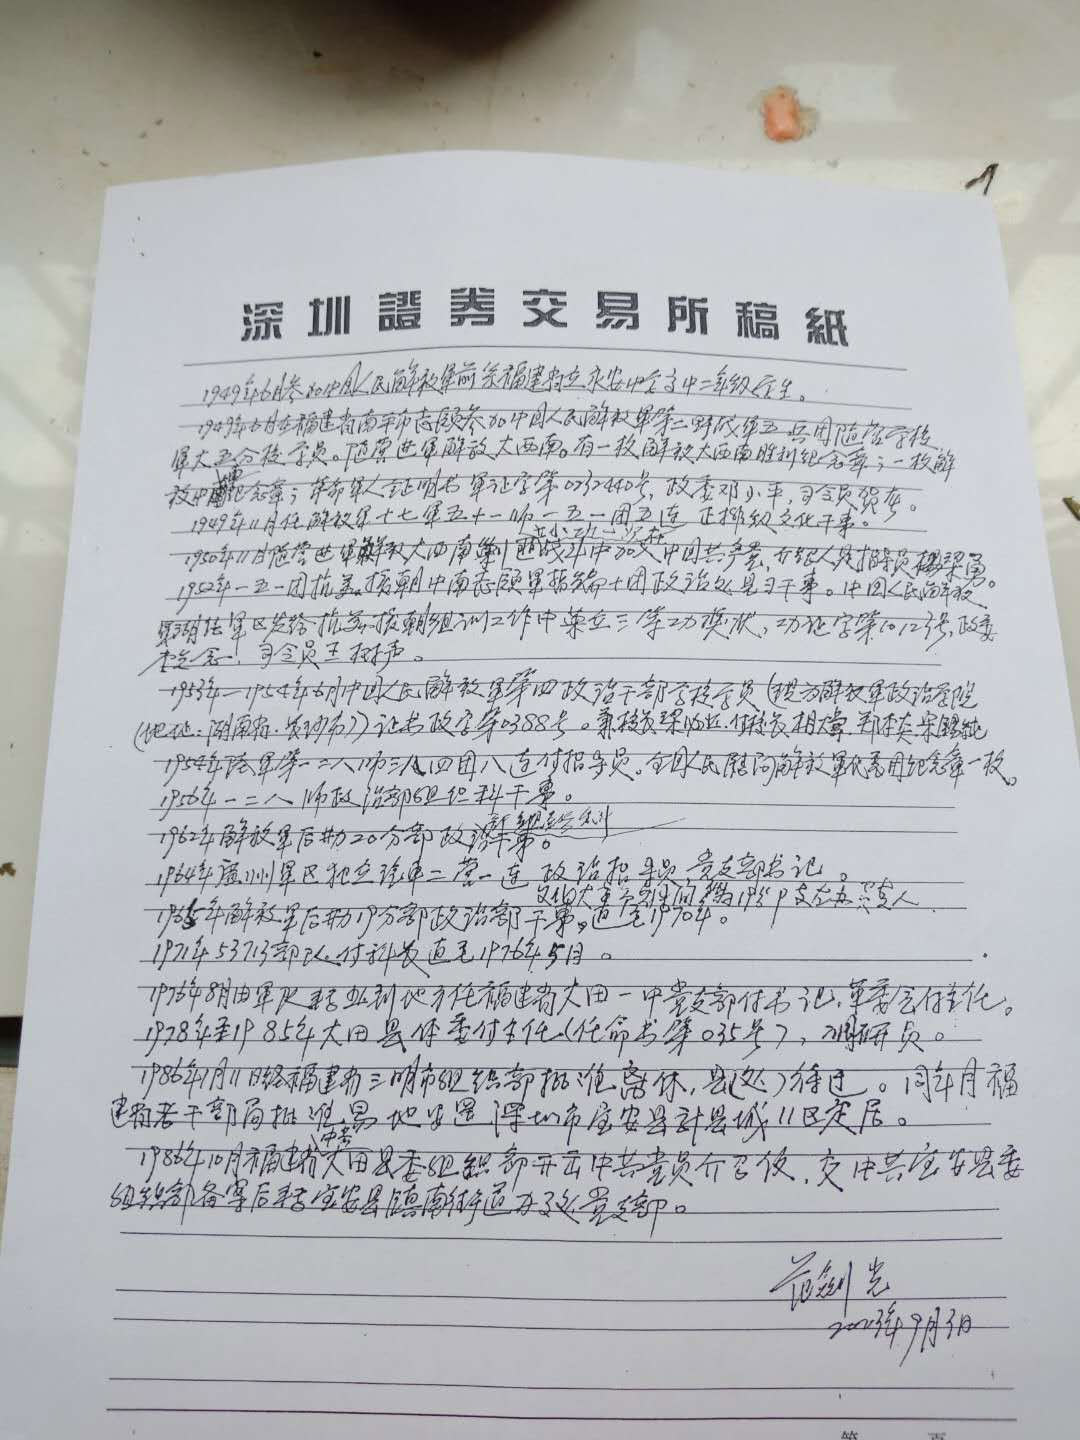 深圳證券交易所稿紙
1949年6月参加中国人民解放军前系福建省立永安中学初中二年级学生。
1949年6月在福建省南平市志愿参加中国人民解放军第二野战军五兵团随营学校
军大五分校学员。随营进军解放大西南。有一枚解放大西南胜利纪念章；一枚解
放 纪念章；革命军人证明书军证字第0232440号，政委邓小平，司令员贺龙。
1949年11月任解放军十七军五十一师一五一团五连正排级文化干事。
1950年11月随营进军解放大西南 战斗中加入中国共产党，介绍人是指导员 。
1952年一五一团抗美援朝中南志愿军 团政治处见习干事。中国人民解放
军 军区发给抗美援朝组训工作中荣立三等功奖状，功证字第1012号，政委
李 ，司令员王树声。
1953年—1954年6月中国人民解放军第四政治干部学校学员（ 解放军政治学院
（地址：湖南省·长沙市））证书政字第0388号。兼校长 ，付校长
1954年陆军第一二八师三八四团八连付指导员。全国人民慰问解放军代表团纪念章一枚。
1956年一二八师政治部组织科干事。
1962年解放军后勤20分部政治 干事。
1964年廣州军区独立汽车二营一连政治指导员党支部书记。
1965年解放军后勤19分部政治部干事，直至1970年。
文化大革命 期间 支左办 人
1971年53713部队付科长直至1976年5月。
1976年8月由军队转业到地方任福建省大田一中党支部付书记，革委会付主任。
1978年至1985年大田县体委付主任（任命书第035号），调研员。
1986年1月11日经福建省三明市组织部批准离休，县（处）待遇。同年月福
建省老干部局批准易地安置深圳市宝安县 县城11区定居。
中共
1986年10月福建省大田县委组织部开出中共党员介绍信，交中共宝安县委
组织部备案后转宝安县镇南街道办事处党支部。
范剑光
2023年9月3日
第 页